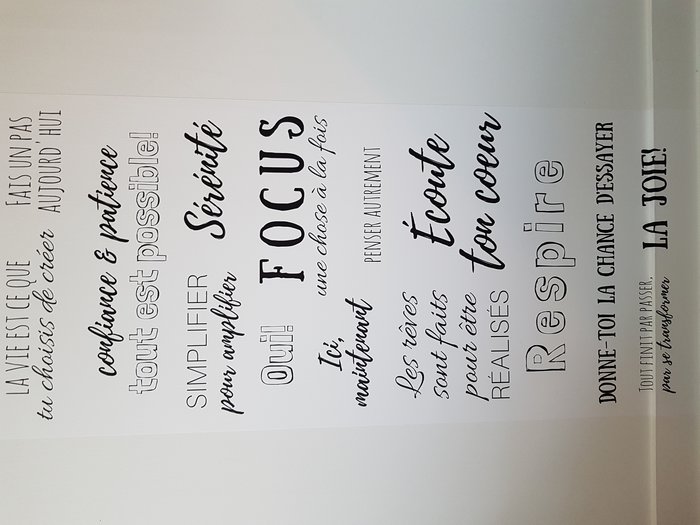 LA VIE EST CE QUE
tu choisis de créer
FAIS UN PAS
AUJOURD'HUI
confiance & patience
tout est possible!
SIMPLIFIER
pour amplifier
Sérénité
Oui!
FOCUS
une chose à la fois
Ici,
maintenant
PENSER AUTREMENT
Les rêves
sont faits
pour être
RÉALISÉS
Écoute
ton coeur
Respire
DONNE-TOI LA CHANCE D'ESSAYER
TOUT FINIT PAR PASSER.
par se transformer
LA JOIE!